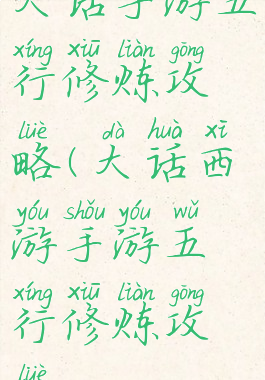 大话手游五
xíng xiū liàn gōng
行修炼攻
lüè dà huà xī
略(大话西
yóu shǒu yóu wǔ
游手游五
xíng xiū liàn gōng
行修炼攻
lüè